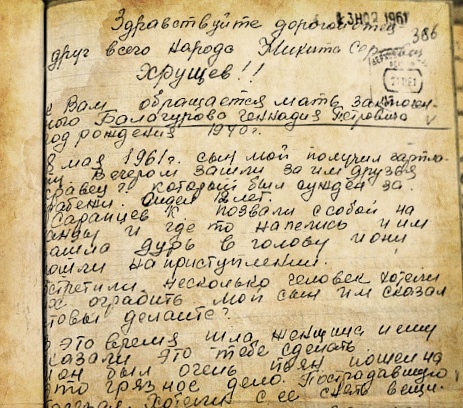 13 НОЯ 1961
386
Здравствуйте дорогой отец
друг всего народа Никита Сер
Хрущев!!
к Вам обращается мать заключен-
ного Балагурова Геннадия Петровича
год рождения 1940г.
8 мая 1961г. сын мой получил
Вечером зашли за им друзья
г. который был сужден за
Сидел 2 лет.
Саранцев К. позвали с собой на
и где то напелись и им
ашла дурь в голову и они
ошли на приступлении.
стретили несколько человек хотели
их ограбить мой сын им сказал
делаите?
В это время шла женщина и ему
казали это тебе сделать
он был очень пян пошел на
это грязное дело. Пострадавшую
Хотели с ее снять вещи.